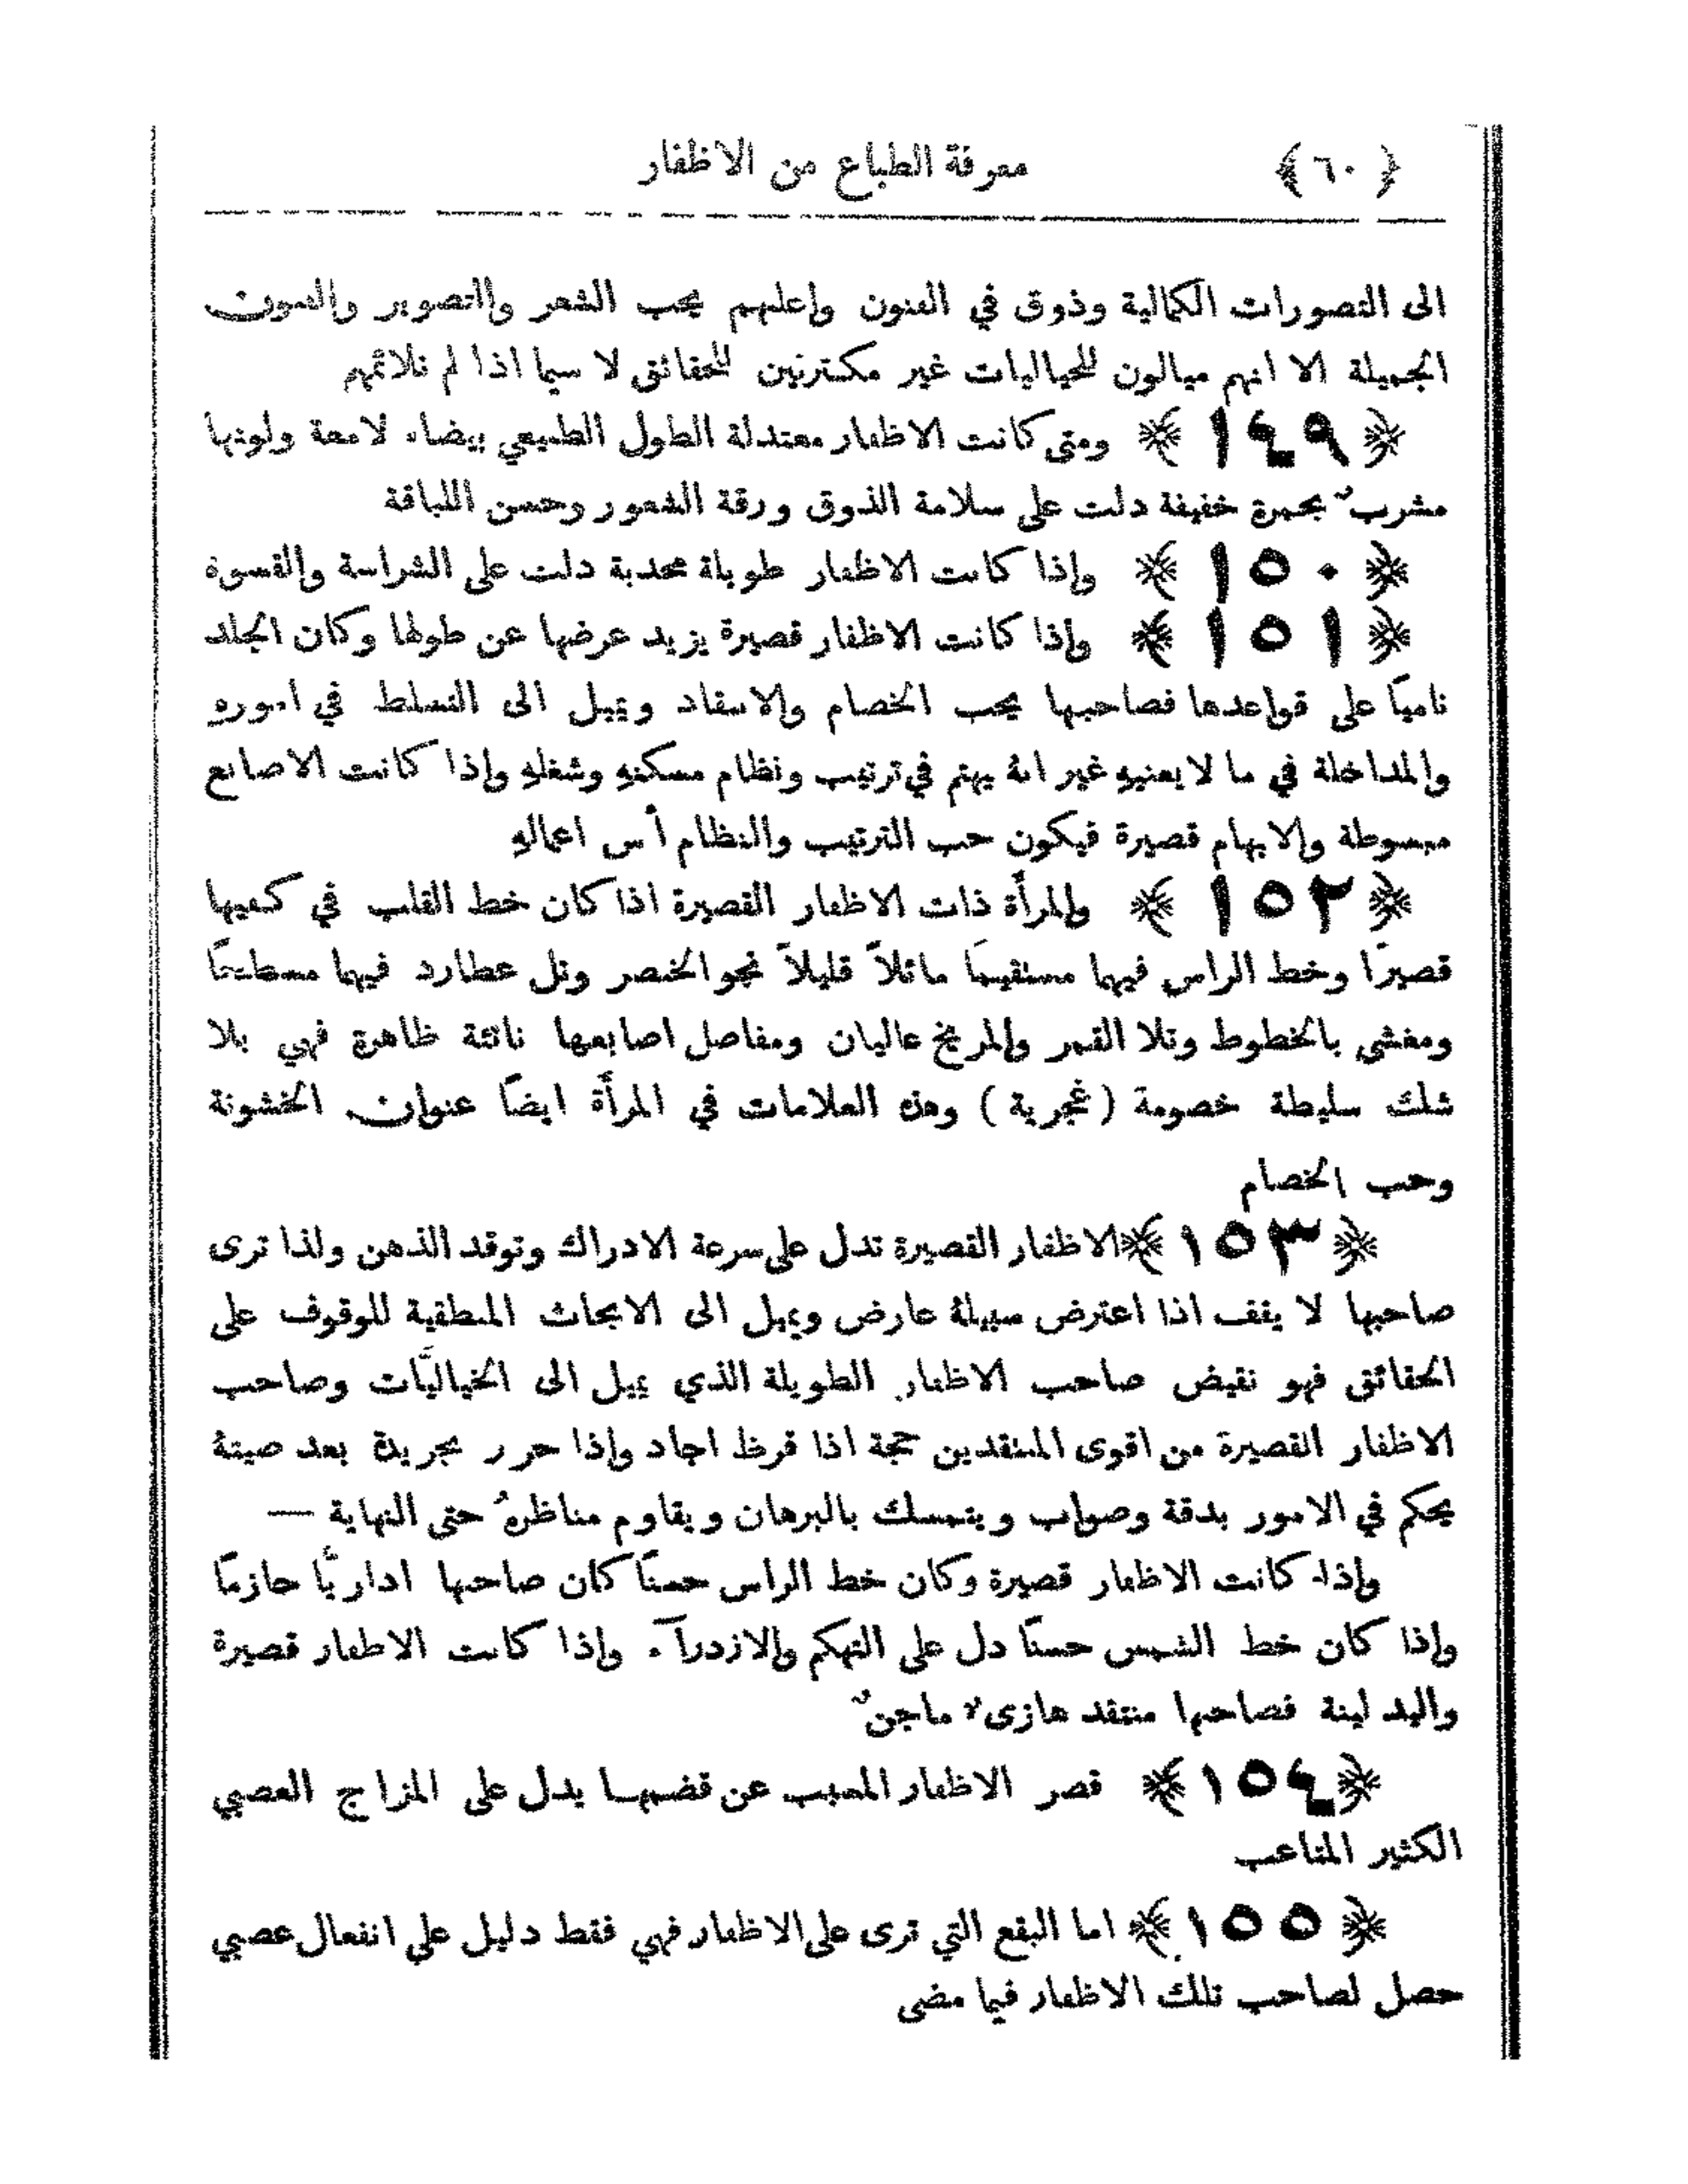 ﴿ ٦٠ ﴾ معرفة الطباع من الاظفار
الى التصورات الكمالية وذوق في الفنون واغلبهم يحب الشعر والتصوير والفنون
الجميلة الا انهم ميالون للخياليات غير مكترثين للحقائق لا سيما اذا لم تلائمهم
﴿ ١٤٩ ﴾ ومتى كانت الاظفار معتدلة الطول الطبيعي بيضاء لامعة ولونها
مشربٌ بحمرة خفيفة دلت على سلامة الذوق ورقة الشعور وحسن اللباقة
﴿ ١٥٠ ﴾ واذا كانت الاظفار طويلة محدبة دلت على الشراسة والقسوة
﴿ ١٥١ ﴾ واذا كانت الاظفار قصيرة يزيد عرضها عن طولها وكان الجلد
ناميًا على قواعدها فصاحبها يحب الخصام والانتقاد ويميل الى التسلط في اموره
والمداخلة في ما لا يعنيهِ غير انهُ يهتم في ترتيب ونظام مسكنهِ وشغلهِ واذا كانت الاصابع
مبسوطة والابهام قصيرة فيكون حب الترتيب والنظام أس اعمالهِ
﴿ ١٥٢ ﴾ والمرأة ذات الاظفار القصيرة اذا كان خط القلب في كفيها
قصيرًا وخط الراس فيهما مستقيمًا مائلاً قليلاً نحو الخنصر وتل عطارد فيهما مسطحًا
ومغشى بالخطوط وتلا القمر والمريخ عاليان ومفاصل اصابعها ناتئة ظاهرة فهي بلا
شك سليطة خصومة (غجرية) وهذه العلامات في المرأة ايضًا عنوان الخشونة
وحب الخصام
﴿ ١٥٣ ﴾ الاظفار القصيرة تدل على سرعة الادراك وتوقد الذهن ولذا ترى
صاحبها لا يقف اذا اعترض سبيلهُ عارض ويميل الى الابحاث المنطقية للوقوف على
الحقائق فهو نقيض صاحب الاظفار الطويلة الذي يميل الى الخياليَّات وصاحب
الاظفار القصيرة من اقوى المنتقدين حجة اذا قرظ اجاد واذا حرر بجريدة بعد صيتهُ
يحكم في الامور بدقة وصواب ويتمسك بالبرهان ويقاوم مناظرهُ حتى النهاية —
واذا كانت الاظفار قصيرة وكان خط الراس حسنًا كان صاحبها اداريًّا حازمًا
واذا كان خط الشمس حسنًا دل على التهكم والازدرآء واذا كانت الاظفار قصيرة
واليد لينة فصاحبها منتقد هازىءٌ ماجنٌ
﴿ ١٥٤ ﴾ قصر الاظفار المسبب عن قضمها يدل على المزاج العصبي
الكثير المتاعب
﴿ ١٥٥ ﴾ اما البقع التي ترى على الاظفار فهي فقط دليل على انفعال عصبي
حصل لصاحب تلك الاظفار فيما مضى